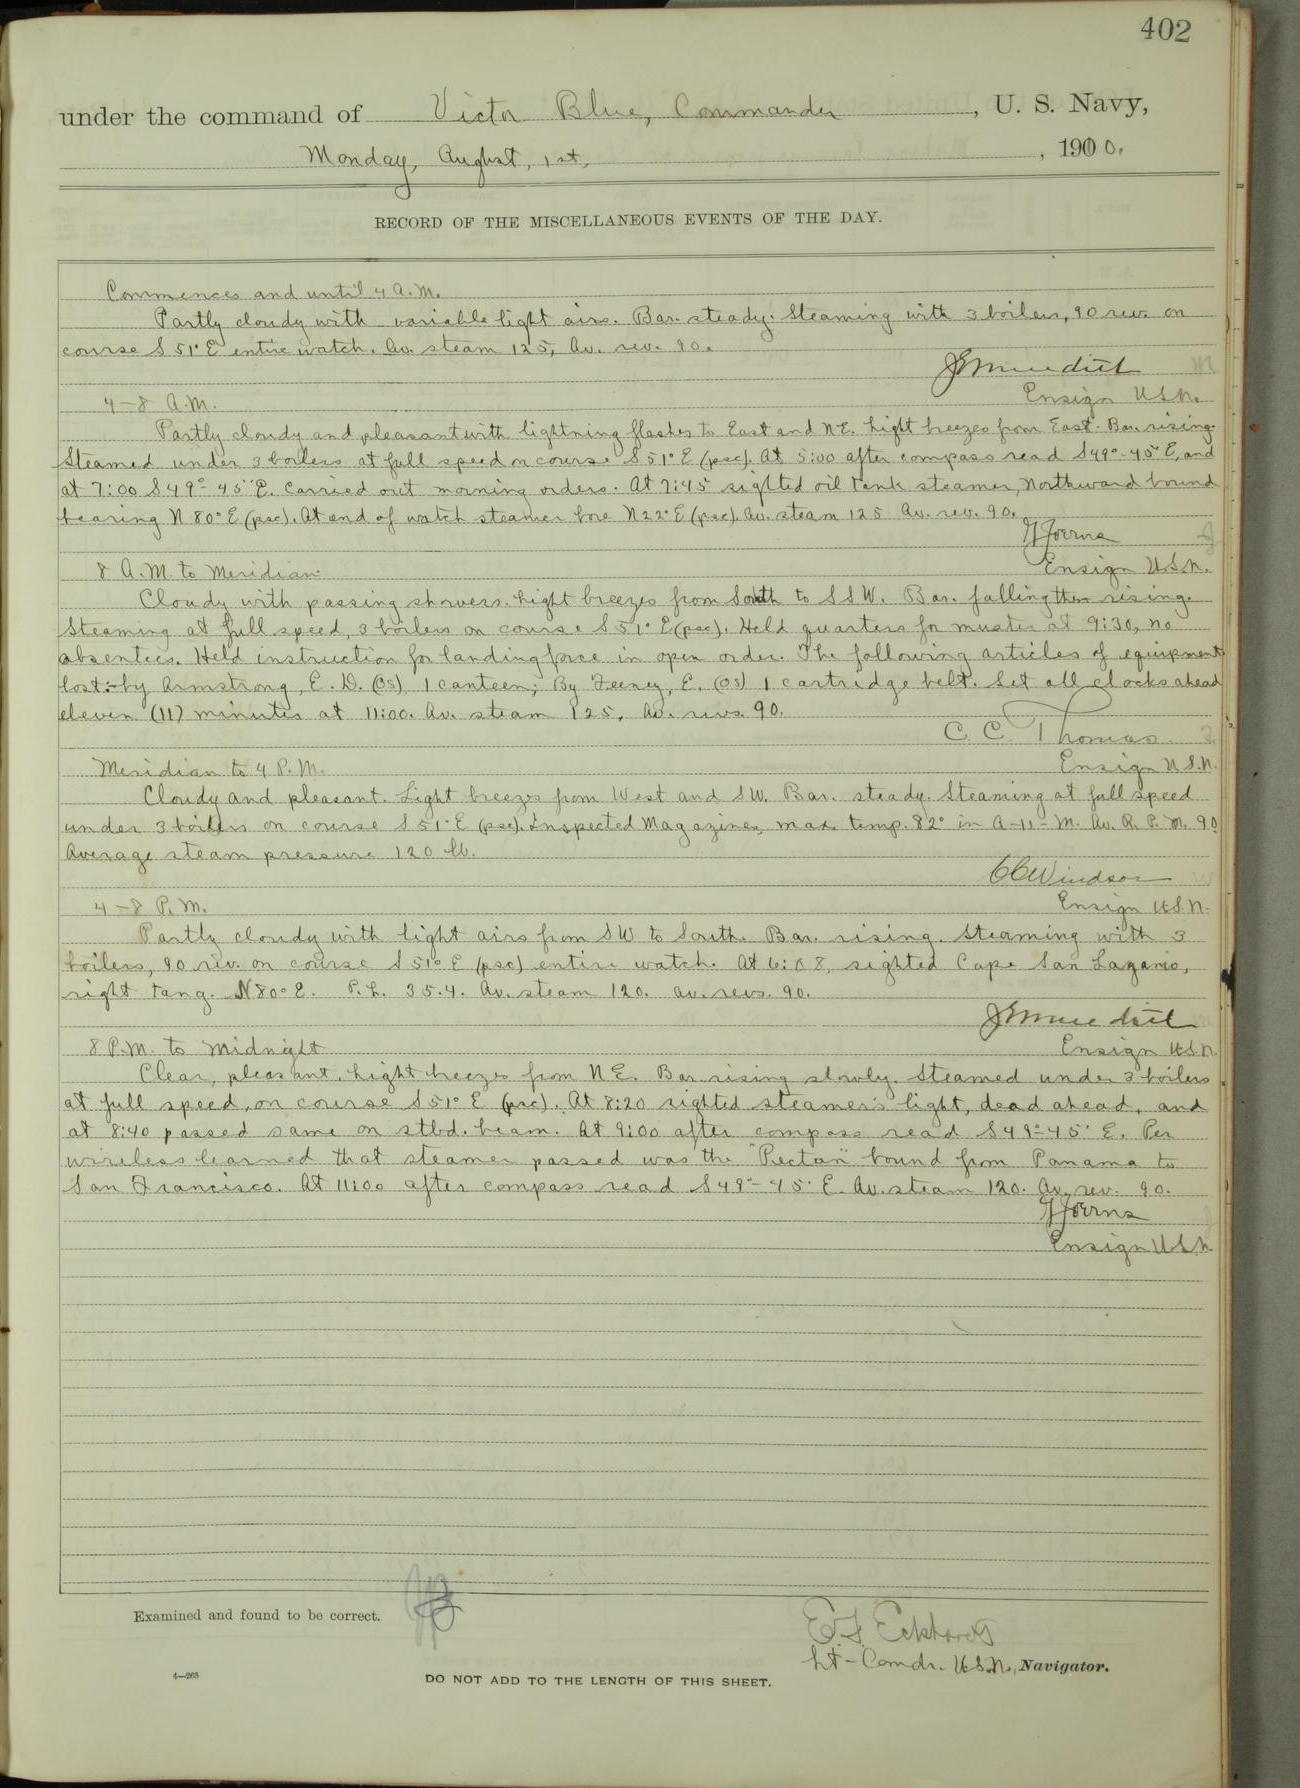 402
under the command of Victor Blue, Commander, U. S. Navy,
Monday, August, 1st, , 1900.
RECORD OF THE MISCELLANEOUS EVENTS OF THE DAY.
Commences and until 4 A.M.
Partly cloudy with variable light airs. Bar. steady. Steaming with 3 boilers, 90 rev. on
course S 51° E entire watch. Av. steam 125, Av. rev. 90.
Ensign U.S.N.
4–8 A.M.
Partly cloudy and pleasant with lightning flashes to East and N.E. Light breezes from East. Bar. rising.
Steamed under 3 boilers at full speed on course S 51° E (psc). At 5:00 after compass read S 49°-45' E, and
at 7:00 S 49°-45' E. Carried out morning orders. At 7:45 sighted oil tank steamer, Northward bound
bearing N 80° E (psc). At end of watch steamer bore N 22° E (psc). Av. steam 125 Av. rev. 90.
Ensign U.S.N.
8 A.M. to Meridian
Cloudy with passing showers. Light breezes from South to SSW. Bar. falling then rising.
Steaming at full speed, 3 boilers on course S 51° E (psc). Held quarters for muster at 9:30, no
absentees. Held instruction for landing force in open order. The following articles of equipment
lost:- by Armstrong, E. D. (OS) 1 canteen; By Feeney, E. (OS) 1 cartridge belt. Set all clocks ahead
eleven (11) minutes at 11:00. Av. steam 125, Av. revs. 90.
C. C. Thomas
Ensign U.S.N.
Meridian to 4 P.M.
Cloudy and pleasant. Light breezes from West and SW. Bar. steady. Steaming at full speed
under 3 boilers on course S 51° E (psc). Inspected Magazines, max. temp. 82° in A-11-M. Av. R. P. M. 90
Average steam pressure 120 lb.
CCWindsor
Ensign U.S.N.
4–8 P.M.
Partly cloudy with light airs from SW to South. Bar. rising. Steaming with 3
boilers, 90 rev. on course S 51° E (psc) entire watch. At 6:08, sighted Cape San Lazaro,
right tang. N 80° E. P.L. 35.4. Av. steam 120. Av. revs. 90.
Ensign U.S.N.
8 P.M. to Midnight
Clear, pleasant. Light breezes from N E. Bar. rising slowly. Steamed under 3 boilers
at full speed, on course S 51° E (psc). At 8:20 sighted steamer's light, dead ahead, and
at 8:40 passed same on stbd. beam. At 9:00 after compass read S 49°-45' E. Per
wireless learned that steamer passed was the "Pectan" bound from Panama to
San Francisco. At 11:00 after compass read S 49°-45' E. Av. steam 120. Av. rev. 90.
Ensign U.S.N.
Examined and found to be correct.
E. S. Eckhardt
Lt-Comdr. U.S.N., Navigator.
4—265
DO NOT ADD TO THE LENGTH OF THIS SHEET.